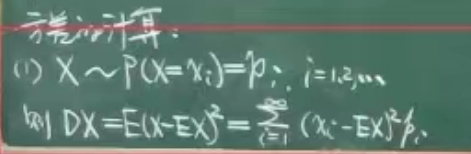 方差的计算：
(1) X ~ P(X=xᵢ)=pᵢ, i=1,2,…
则 DX=E(X-EX)²=∑_{i=1}^{∞} (xᵢ-EX)²pᵢ.